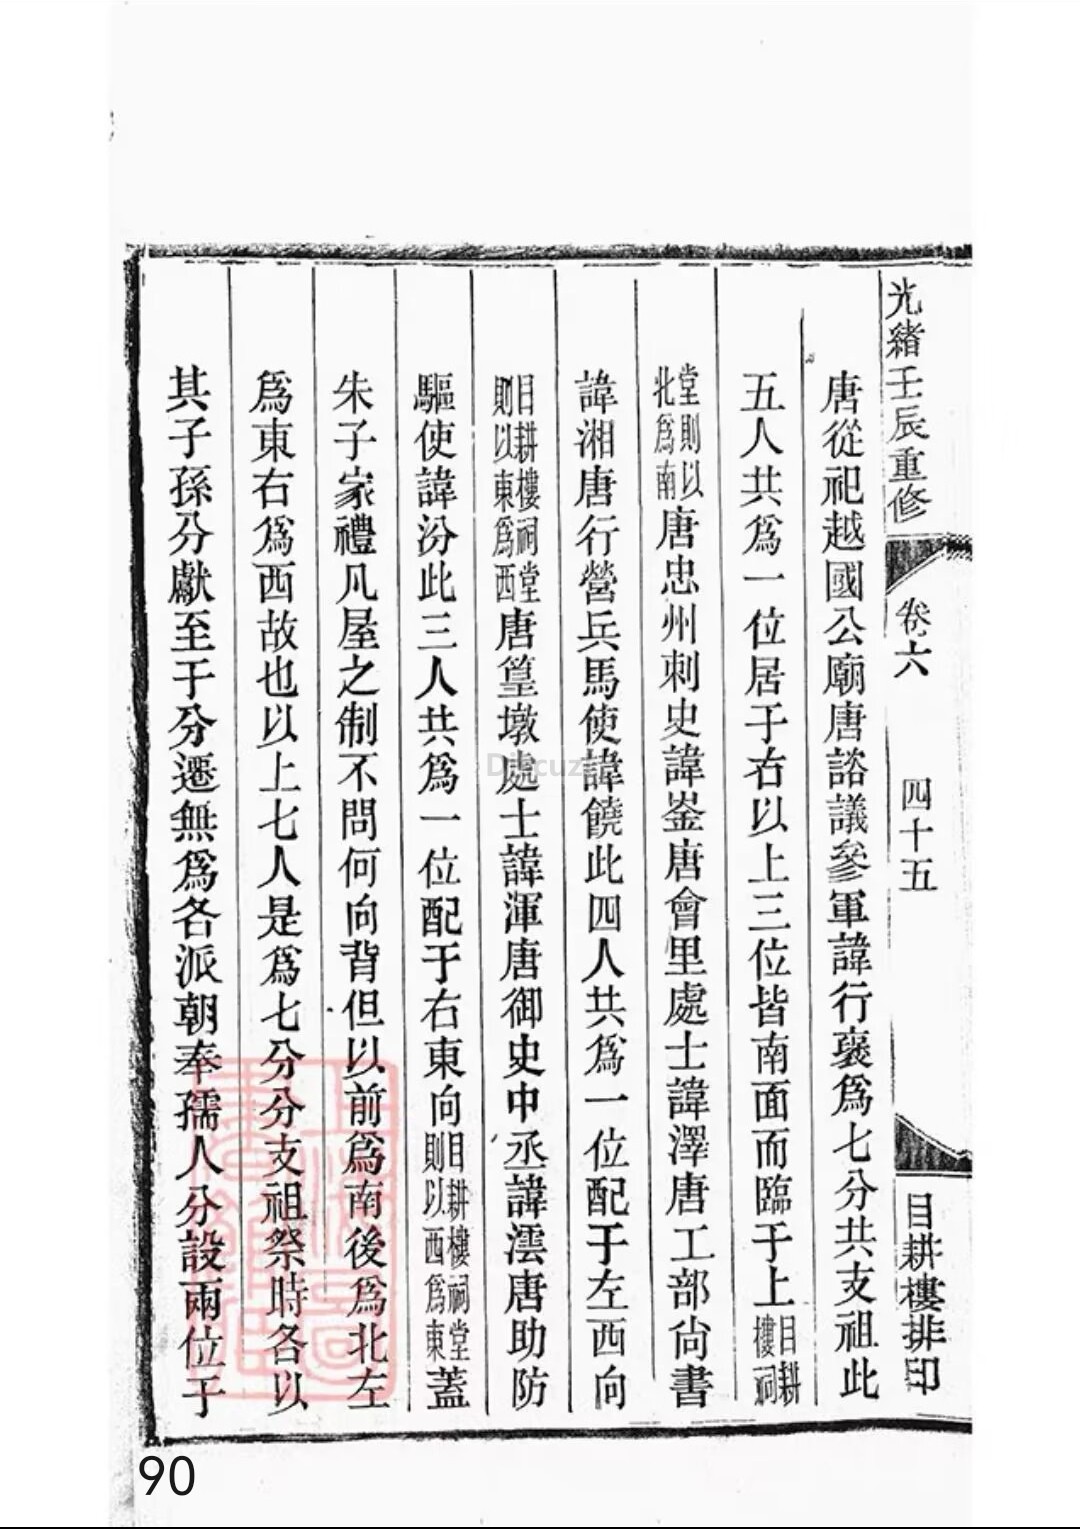 光緒壬辰重修
卷六
四十五
目耕樓排印
唐從祀越國公廟唐諮議參軍諱行褒爲七分共支祖此
五人共爲一位居于右以上三位皆南面而臨于上目耕樓祠
堂則以北爲南唐忠州刺史諱崟唐會里處士諱澤唐工部尙書
諱湘唐行營兵馬使諱饒此四人共爲一位配于左西向
目耕樓祠堂則以東爲西唐篁墩處士諱渾唐御史中丞諱澐唐助防
驅使諱汾此三人共爲一位配于右東向目耕樓祠堂則以西爲東蓋
朱子家禮凡屋之制不問何向背但以前爲南後爲北左
爲東右爲西故也以上七人是爲七分分支祖祭時各以
其子孫分獻至于分遷無爲各派朝奉孺人分設兩位于
90
Discuz!